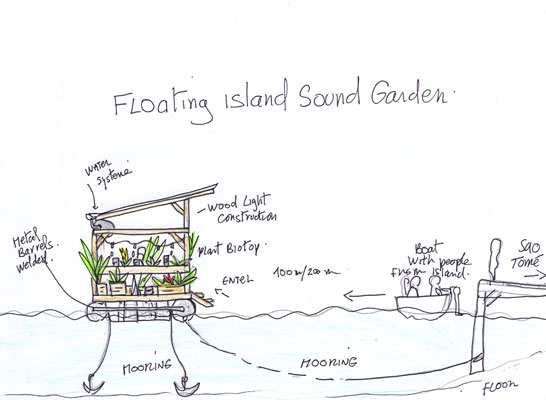 FLoating island Sound Garden.
Water
Systeme
Wood Light
Construction
Metal
Barrels.
Welded.
Plant Biotop
100m/200m
Boat
with people
from island.
SAO
Tomé
MOORING
MOORING
FLOOR